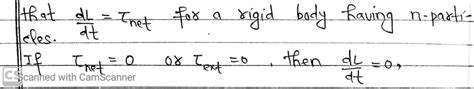 that dL/dt = τnet for a rigid body having n-parti-
cles.
If τnet = 0 or τext = 0, then dL/dt = 0,
CS Scanned with CamScanner